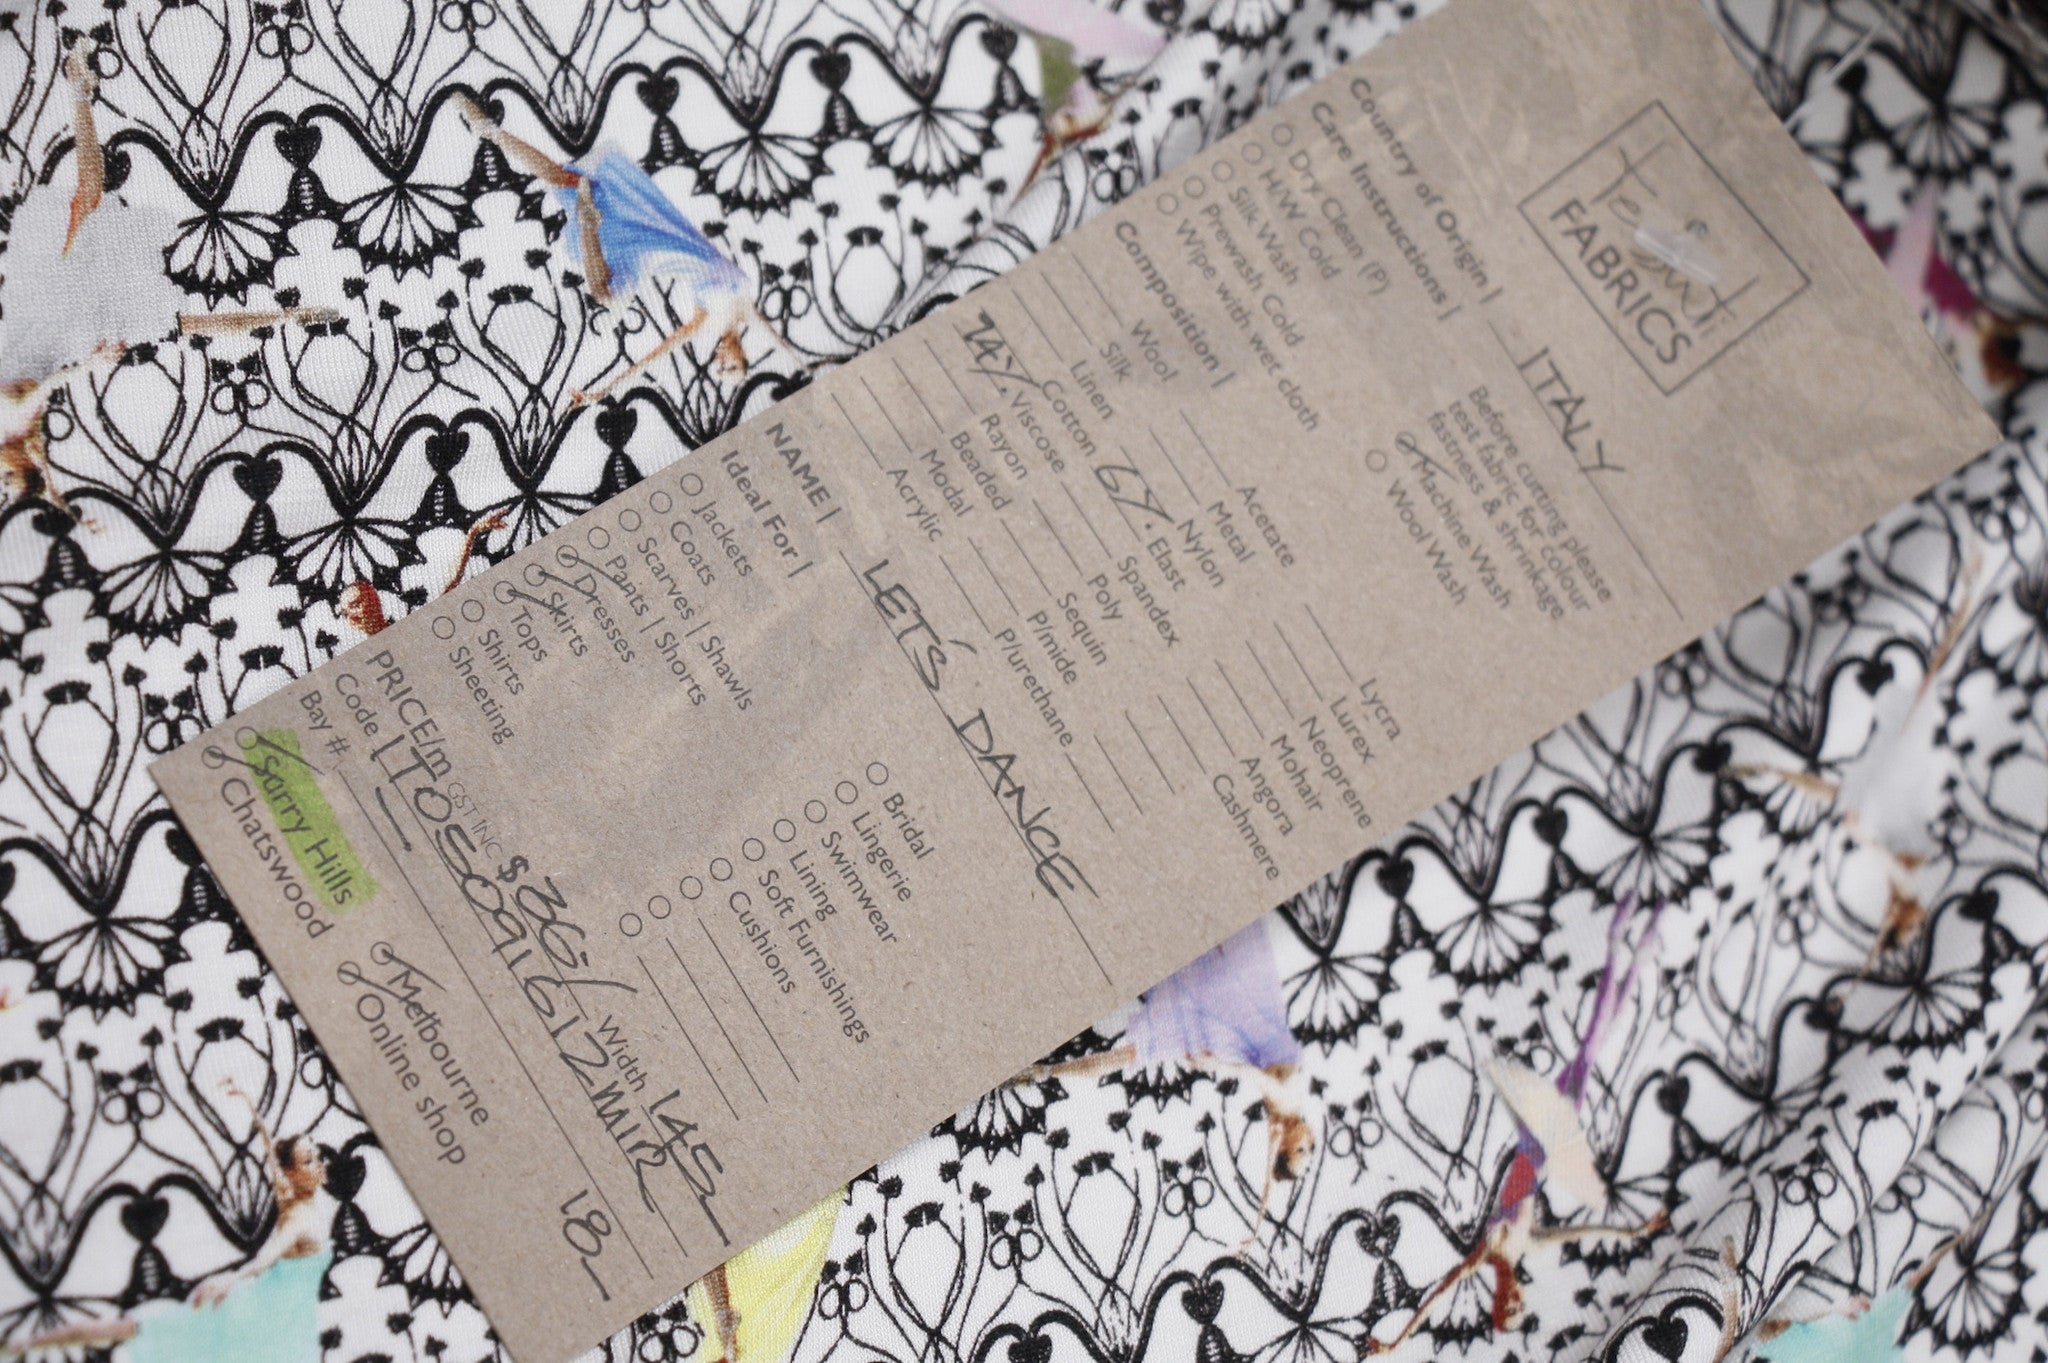 Tessuti
FABRICS
Country of Origin | ITALY
Care Instructions |
Dry Clean (P)
H/W Cold
Silk Wash
Prewash Cold
Wipe with wet cloth
Before cutting please
test fabric for colour
fastness & shrinkage
Machine Wash
Wool Wash
Composition |
Wool
Silk
Linen
Cotton
Viscose
Rayon
Beaded
Modal
Acrylic
Acetate
Metal
Nylon
6%. Elast
Spandex
Poly
Sequin
P/mide
P/urethane
Lycra
Lurex
Neoprene
Mohair
Angora
Cashmere
NAME | LET'S DANCE
Ideal For |
Jackets
Coats
Scarves | Shawls
Pants | Shorts
Dresses
Skirts
Tops
Shirts
Sheeting
Bridal
Lingerie
Swimwear
Lining
Soft Furnishings
Cushions
PRICE/m GST INC $36./ Width 145
Code ITOS091612MIR
Bay # 18
Surry Hills
Chatswood
Melbourne
Online shop